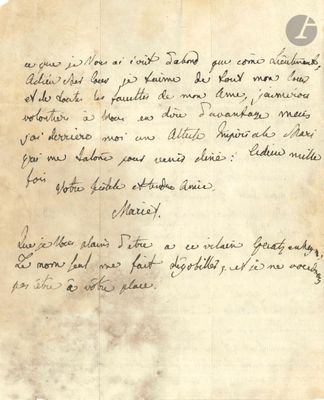 ce que je Vous ai écrit d'abord que come
Adieu cher Cous je t'aime de tout mon Cœur
et de toutes les facultes de mon Ame, j'aimerois
volontier à Vous en dire d'avantage mais
j'ai derriere moi un Altesse Imperiale Mari
qui me talone pour venir diné: Adieu mille
fois
Votre fidele et tendre Amie
Marie.
Que je Vous plains d'etre a ce vilain
Le nom seul me fait dégobiller, et je ne
pas être à votre place.